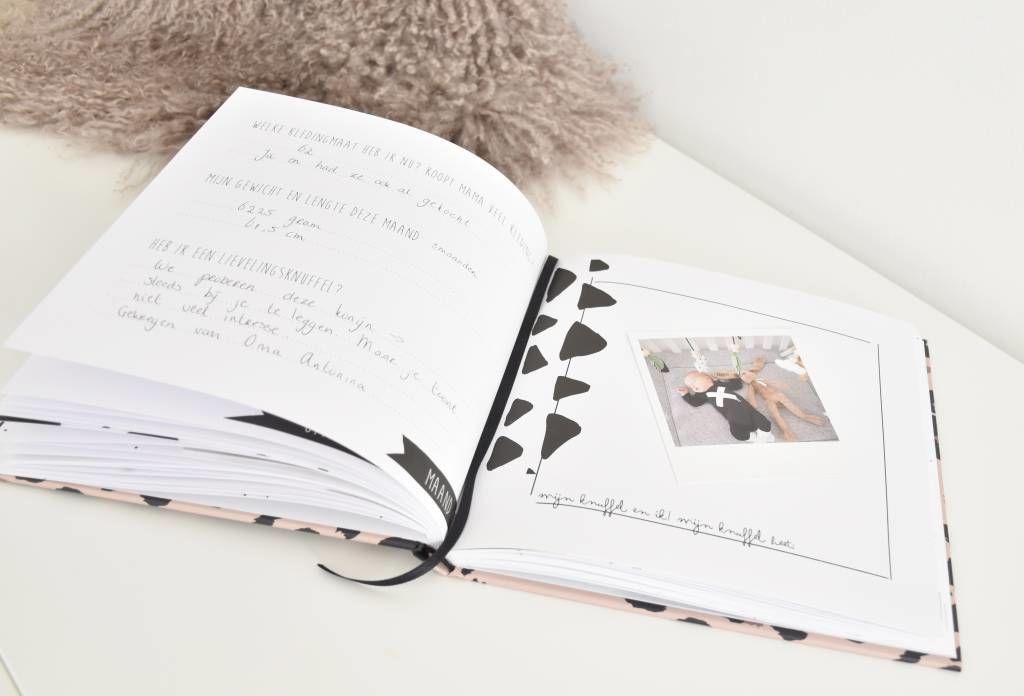 WELKE KLEDINGMAAT HEB IK NU? KOOPT MAMA VEEL KLEDING?
62
Ja en had ze ook al gekocht
MIJN GEWICHT EN LENGTE DEZE MAAND
6225 gram
61.5 cm
HEB IK EEN LIEVELINGSKNUFFEL?
We proberen deze konijn →
steeds bij je te leggen. Maar je toont
niet veel interesse.
Gekregen van Oma Antonina
MAAND
mijn knuffel en ik! mijn knuffel heet: